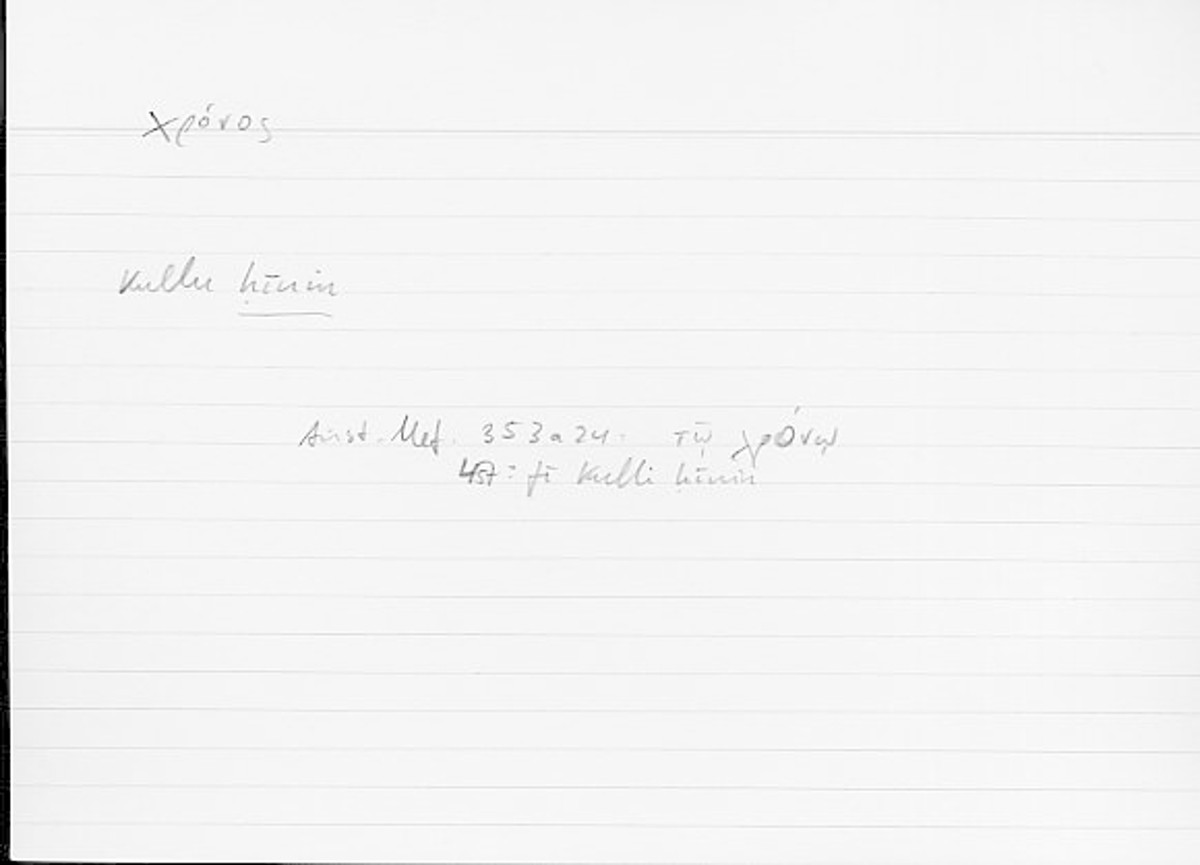 χρόνος
kullu ḥīnin
Arist. Met. 353a24: τῷ χρόνῳ
457: fī kulli ḥīnin